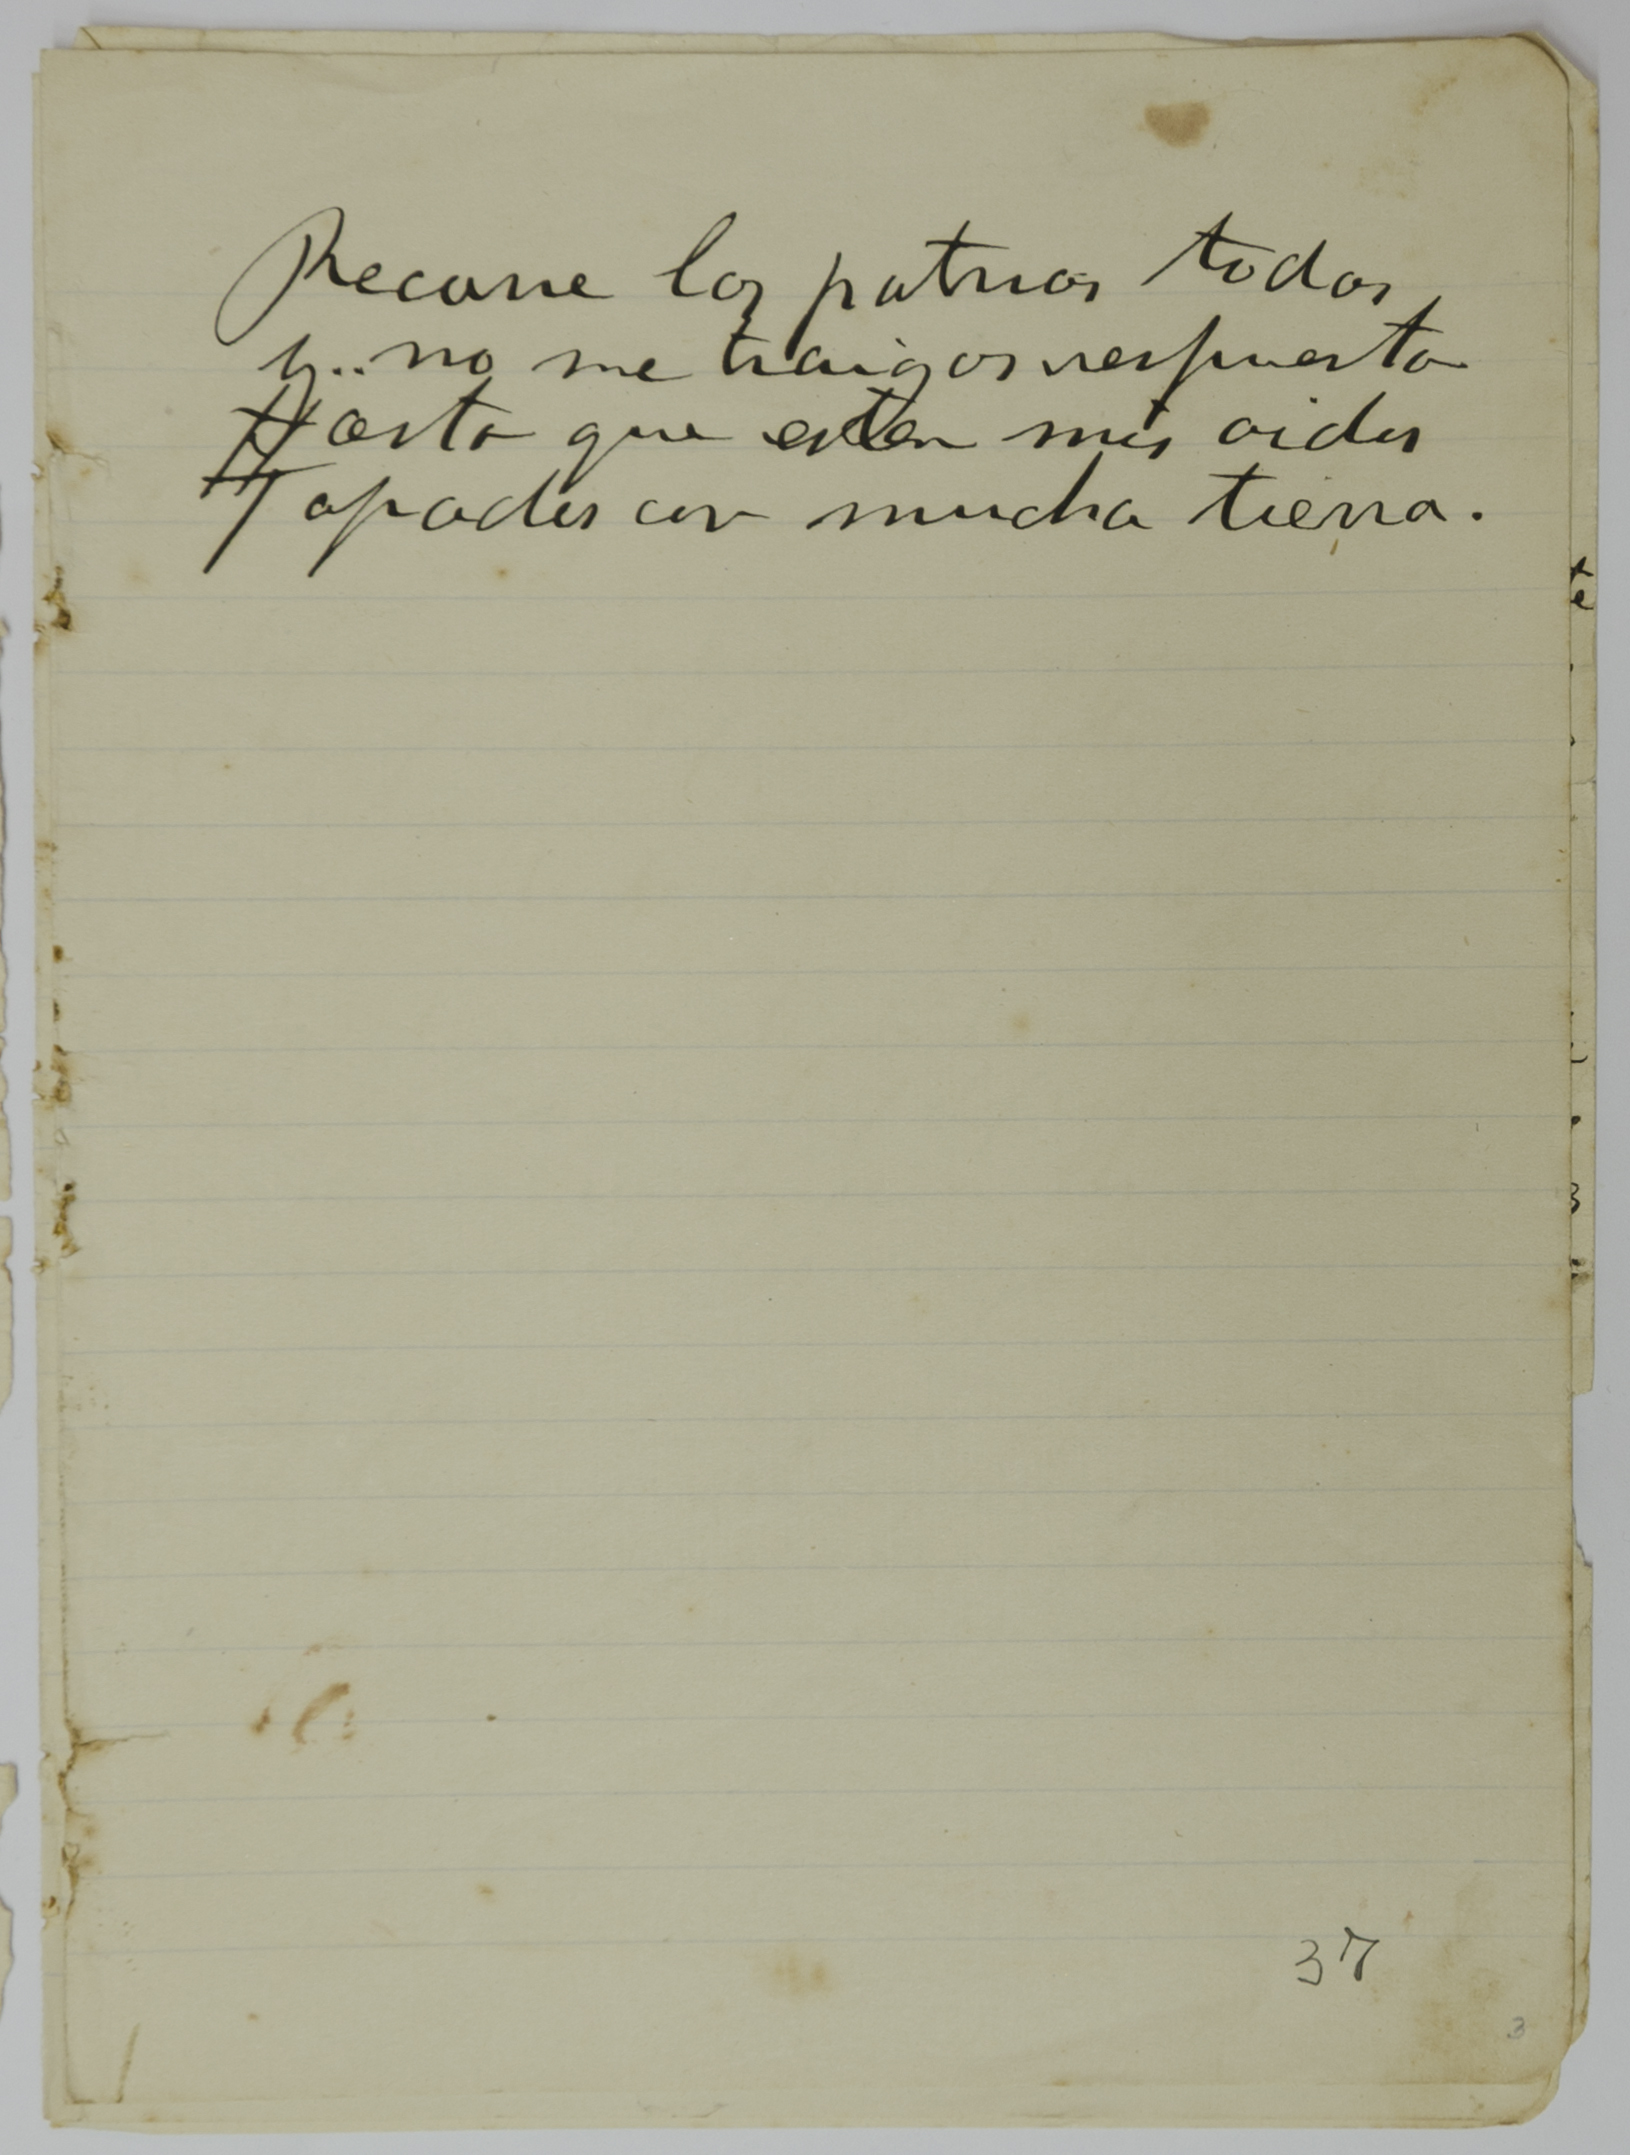 Recorre las patrias todas
y.. no me traigas respuesta
Hasta que esten mis oidos
Tapados con mucha tierra.
te
37
3